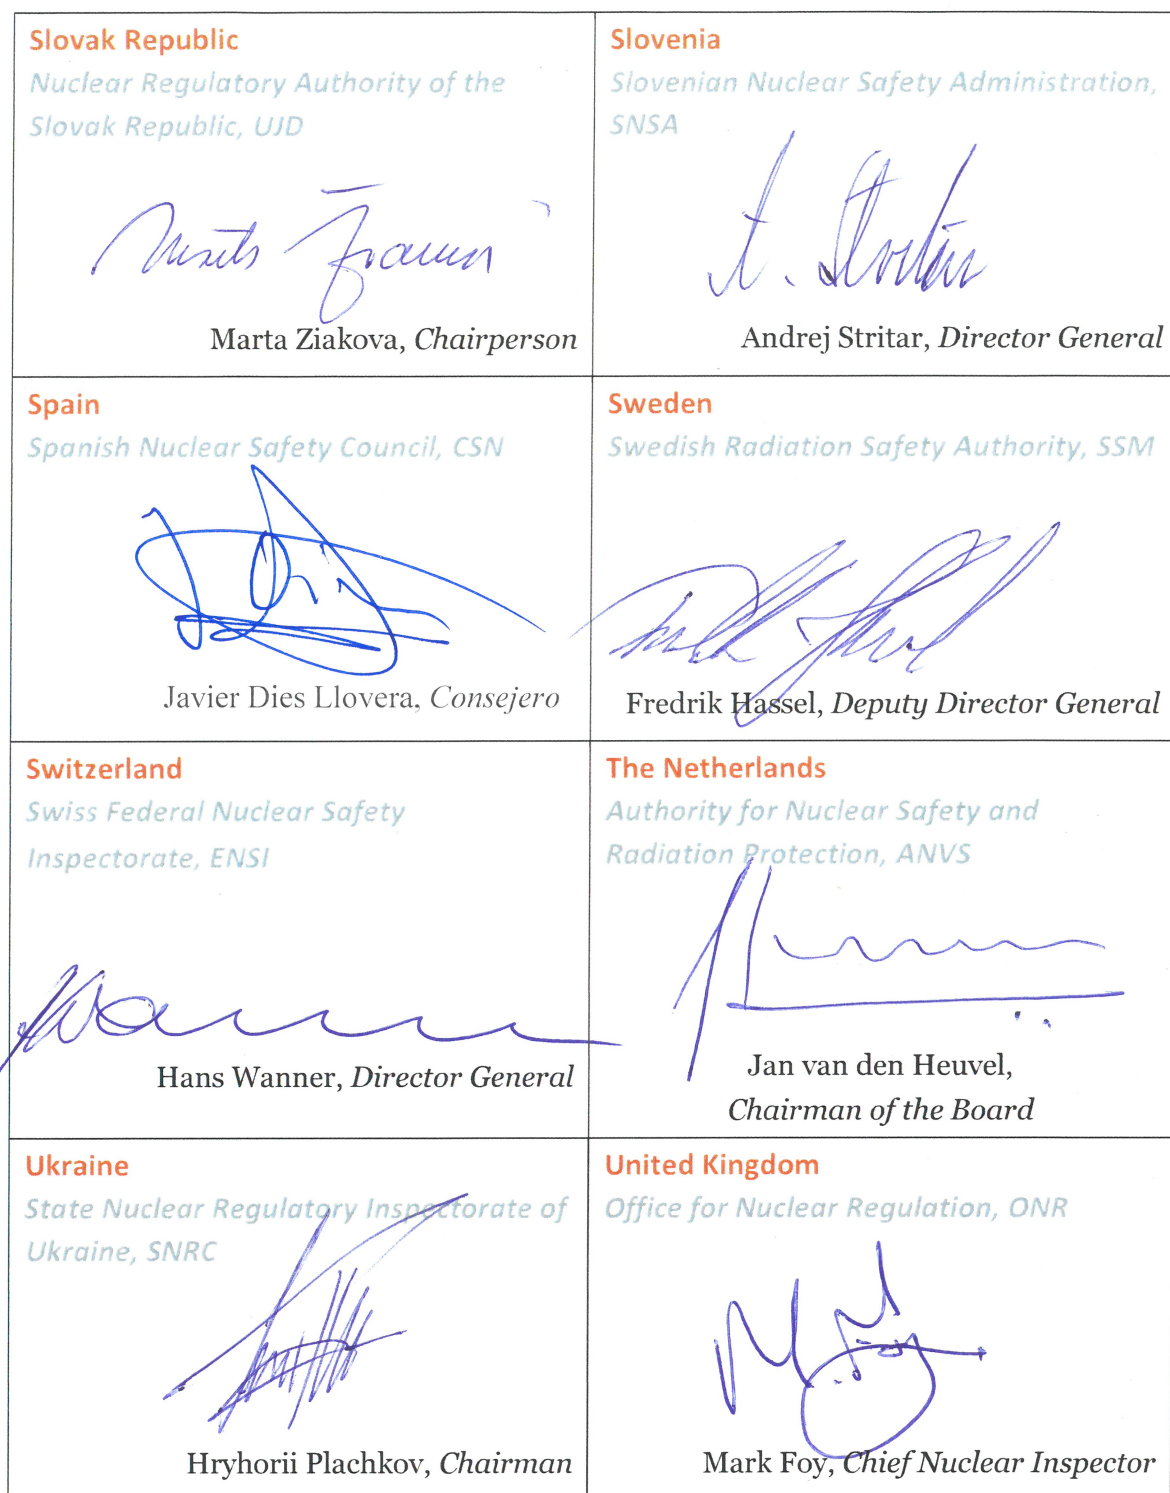 Slovak Republic
Nuclear Regulatory Authority of the
Slovak Republic, UJD
Marta Ziakova, Chairperson
Slovenia
Slovenian Nuclear Safety Administration,
SNSA
A. Stritar
Andrej Stritar, Director General
Spain
Spanish Nuclear Safety Council, CSN
Javier Dies Llovera, Consejero
Sweden
Swedish Radiation Safety Authority, SSM
Fredrik Hassel, Deputy Director General
Switzerland
Swiss Federal Nuclear Safety
Inspectorate, ENSI
Hans Wanner, Director General
The Netherlands
Authority for Nuclear Safety and
Radiation Protection, ANVS
Jan van den Heuvel,
Chairman of the Board
Ukraine
State Nuclear Regulatory Inspectorate of
Ukraine, SNRC
Hryhorii Plachkov, Chairman
United Kingdom
Office for Nuclear Regulation, ONR
Mark Foy, Chief Nuclear Inspector